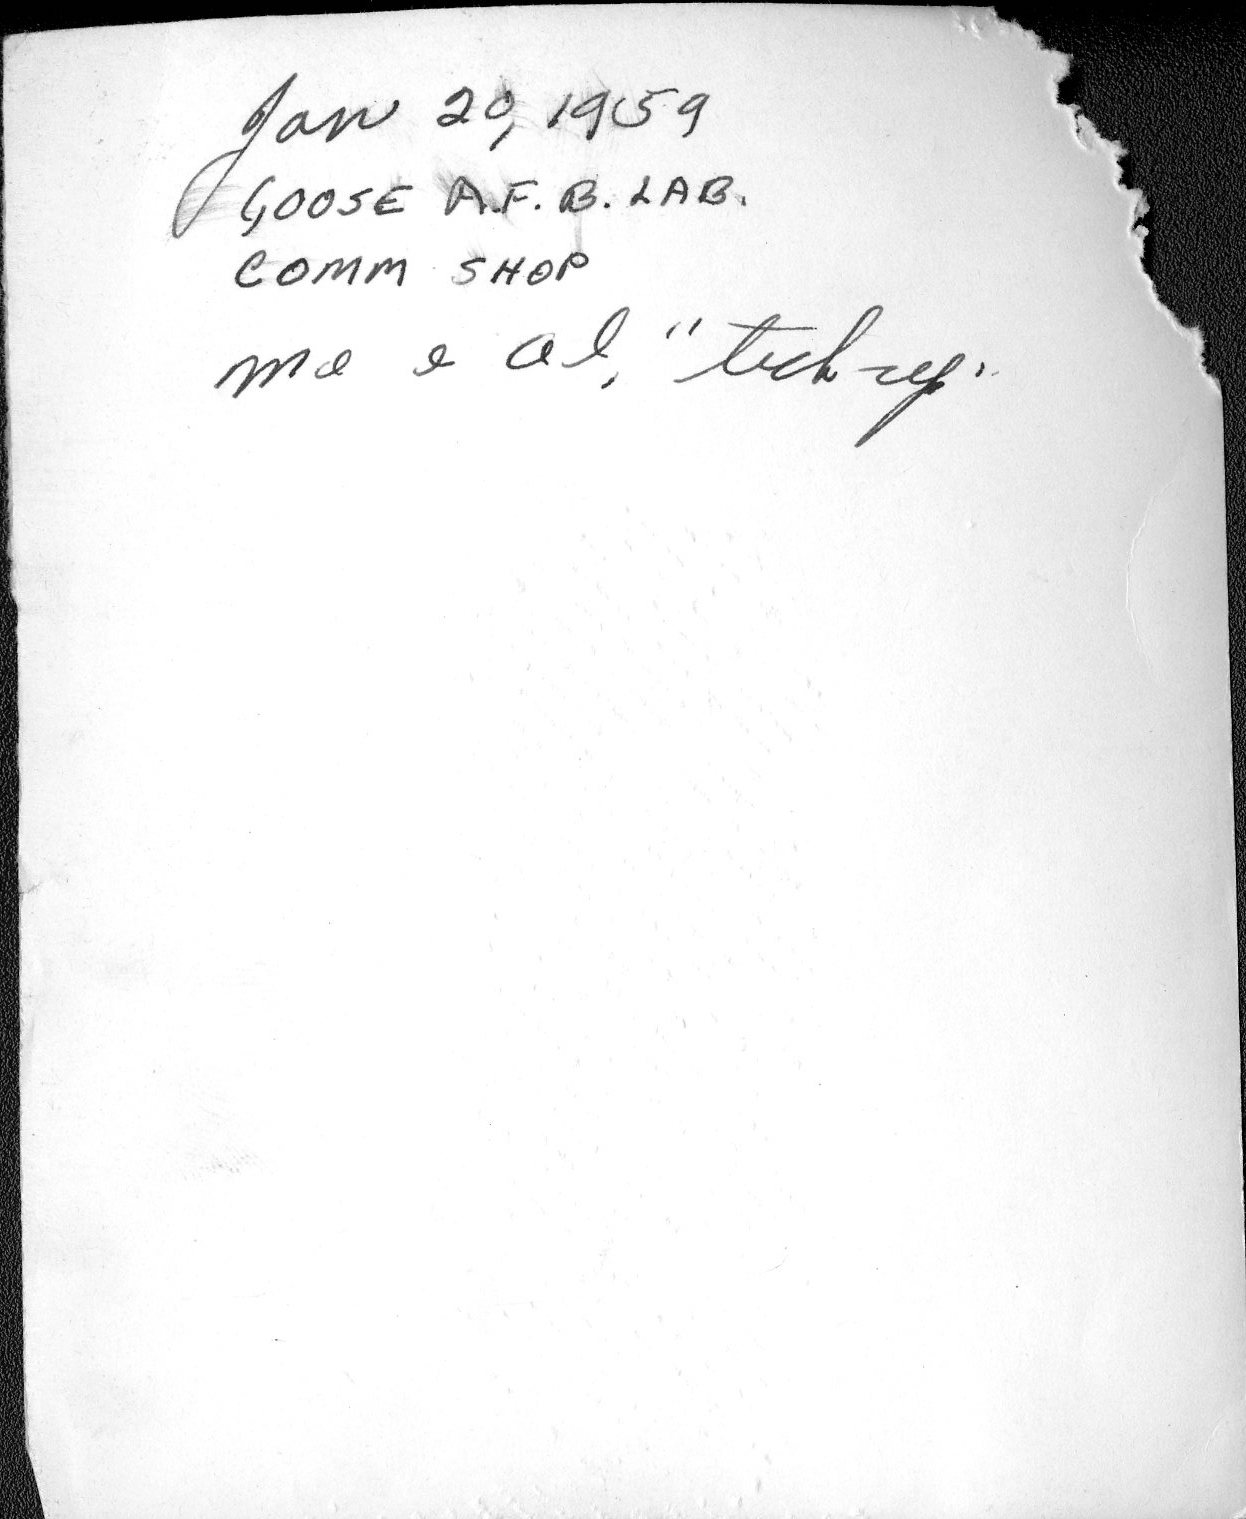 Jan 20, 1959
GOOSE A.F.B. LAB.
COMM SHOP
me & al, "tech-rep.